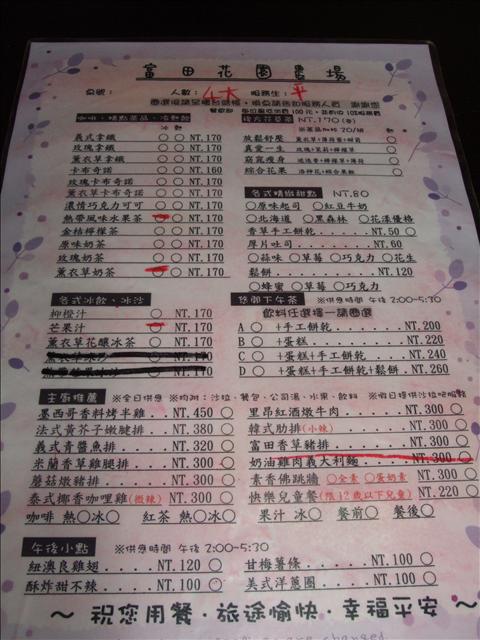 富田花園農場
桌號: 人數: 4大 服務生: 平
咖啡、精點茶品、冷熱飲
熱 冰
義式拿鐵 ○ ○ NT.170
玫瑰拿鐵 ○ ○ NT.170
薰衣草拿鐵 ○ ○ NT.170
卡布奇諾 ○ ○ NT.160
玫瑰卡布奇諾 ○ ○ NT.170
薰衣草卡布奇諾 ○ ○ NT.170
濃情巧克力可可 ○ ○ NT.170
熱帶風味水果茶 ○ ○ NT.170
金桔檸檬茶 ○ ○ NT.170
原味奶茶 ○ ○ NT.170
玫瑰奶茶 ○ ○ NT.170
薰衣草奶茶 ○ ○ NT.170
複方花草茶 NT.170(壺)
※茶品加冰 20/組 熱 冰
放鬆舒壓 ○ ○
真愛一生 ○ ○
窈窕瘦身 ○ ○
綜合花果 ○ ○
各式精緻甜點 NT.80
○原味起司 ○紅豆牛奶
○北海道 ○黑森林 ○花漾優格
香草手工小餅乾............NT.50 ○
厚片吐司..................NT.60
○蒜味 ○草莓 ○巧克力 ○花生
鬆餅......................NT.120
○蜂蜜 ○草莓 ○巧克力
各式冰飲、冰沙
柳橙汁 ○ NT.170
芒果汁 ○ NT.170
薰衣草花釀冰茶 ○ NT.170
悠閒下午茶 ※供應時間 下午 2:00~5:30
飲料任選擇一請圈選
A ○ +手工餅乾........NT.200
B ○ +蛋糕............NT.220
C ○ +蛋糕+手工餅乾....NT.240
D ○ +蛋糕+手工餅乾+鬆餅.NT.260
主廚推薦 ※全日供應 ※均附:沙拉、餐包、公司湯、水果、飲料 ※假日提供沙拉吧服務
墨西哥香料烤半雞..NT.450 ○
法式黃芥子嫩腿排..NT.380 ○
義式青醬魚排......NT.320 ○
米蘭香草雞腿排....NT.300 ○
蘑菇燉豬排........NT.300 ○
泰式椰香咖哩雞(微辣).NT.300 ○
里昂紅酒燉牛肉....NT.300 ○
韓式肋排(小辣)....NT.300 ○
富田香草豬排......NT.300 ○
奶油雞肉義大利麵..NT.300 ○
素香佛跳牆 ○全素 ○蛋奶素 NT.300 ○
快樂兒童餐(限12歲以下兒童) NT.220 ○
咖啡 熱○冰○ 紅茶 熱○冰○ 果汁 冰○ 餐前○ 餐後○
午後小點 ※供應時間 午後 2:00~5:30
紐澳良雞翅..NT.120 ○
酥炸甜不辣..NT.100 ○
甘梅薯條....NT.100 ○
美式洋蔥圈..NT.100 ○
~ 祝您用餐·旅途愉快·幸福平安 ~